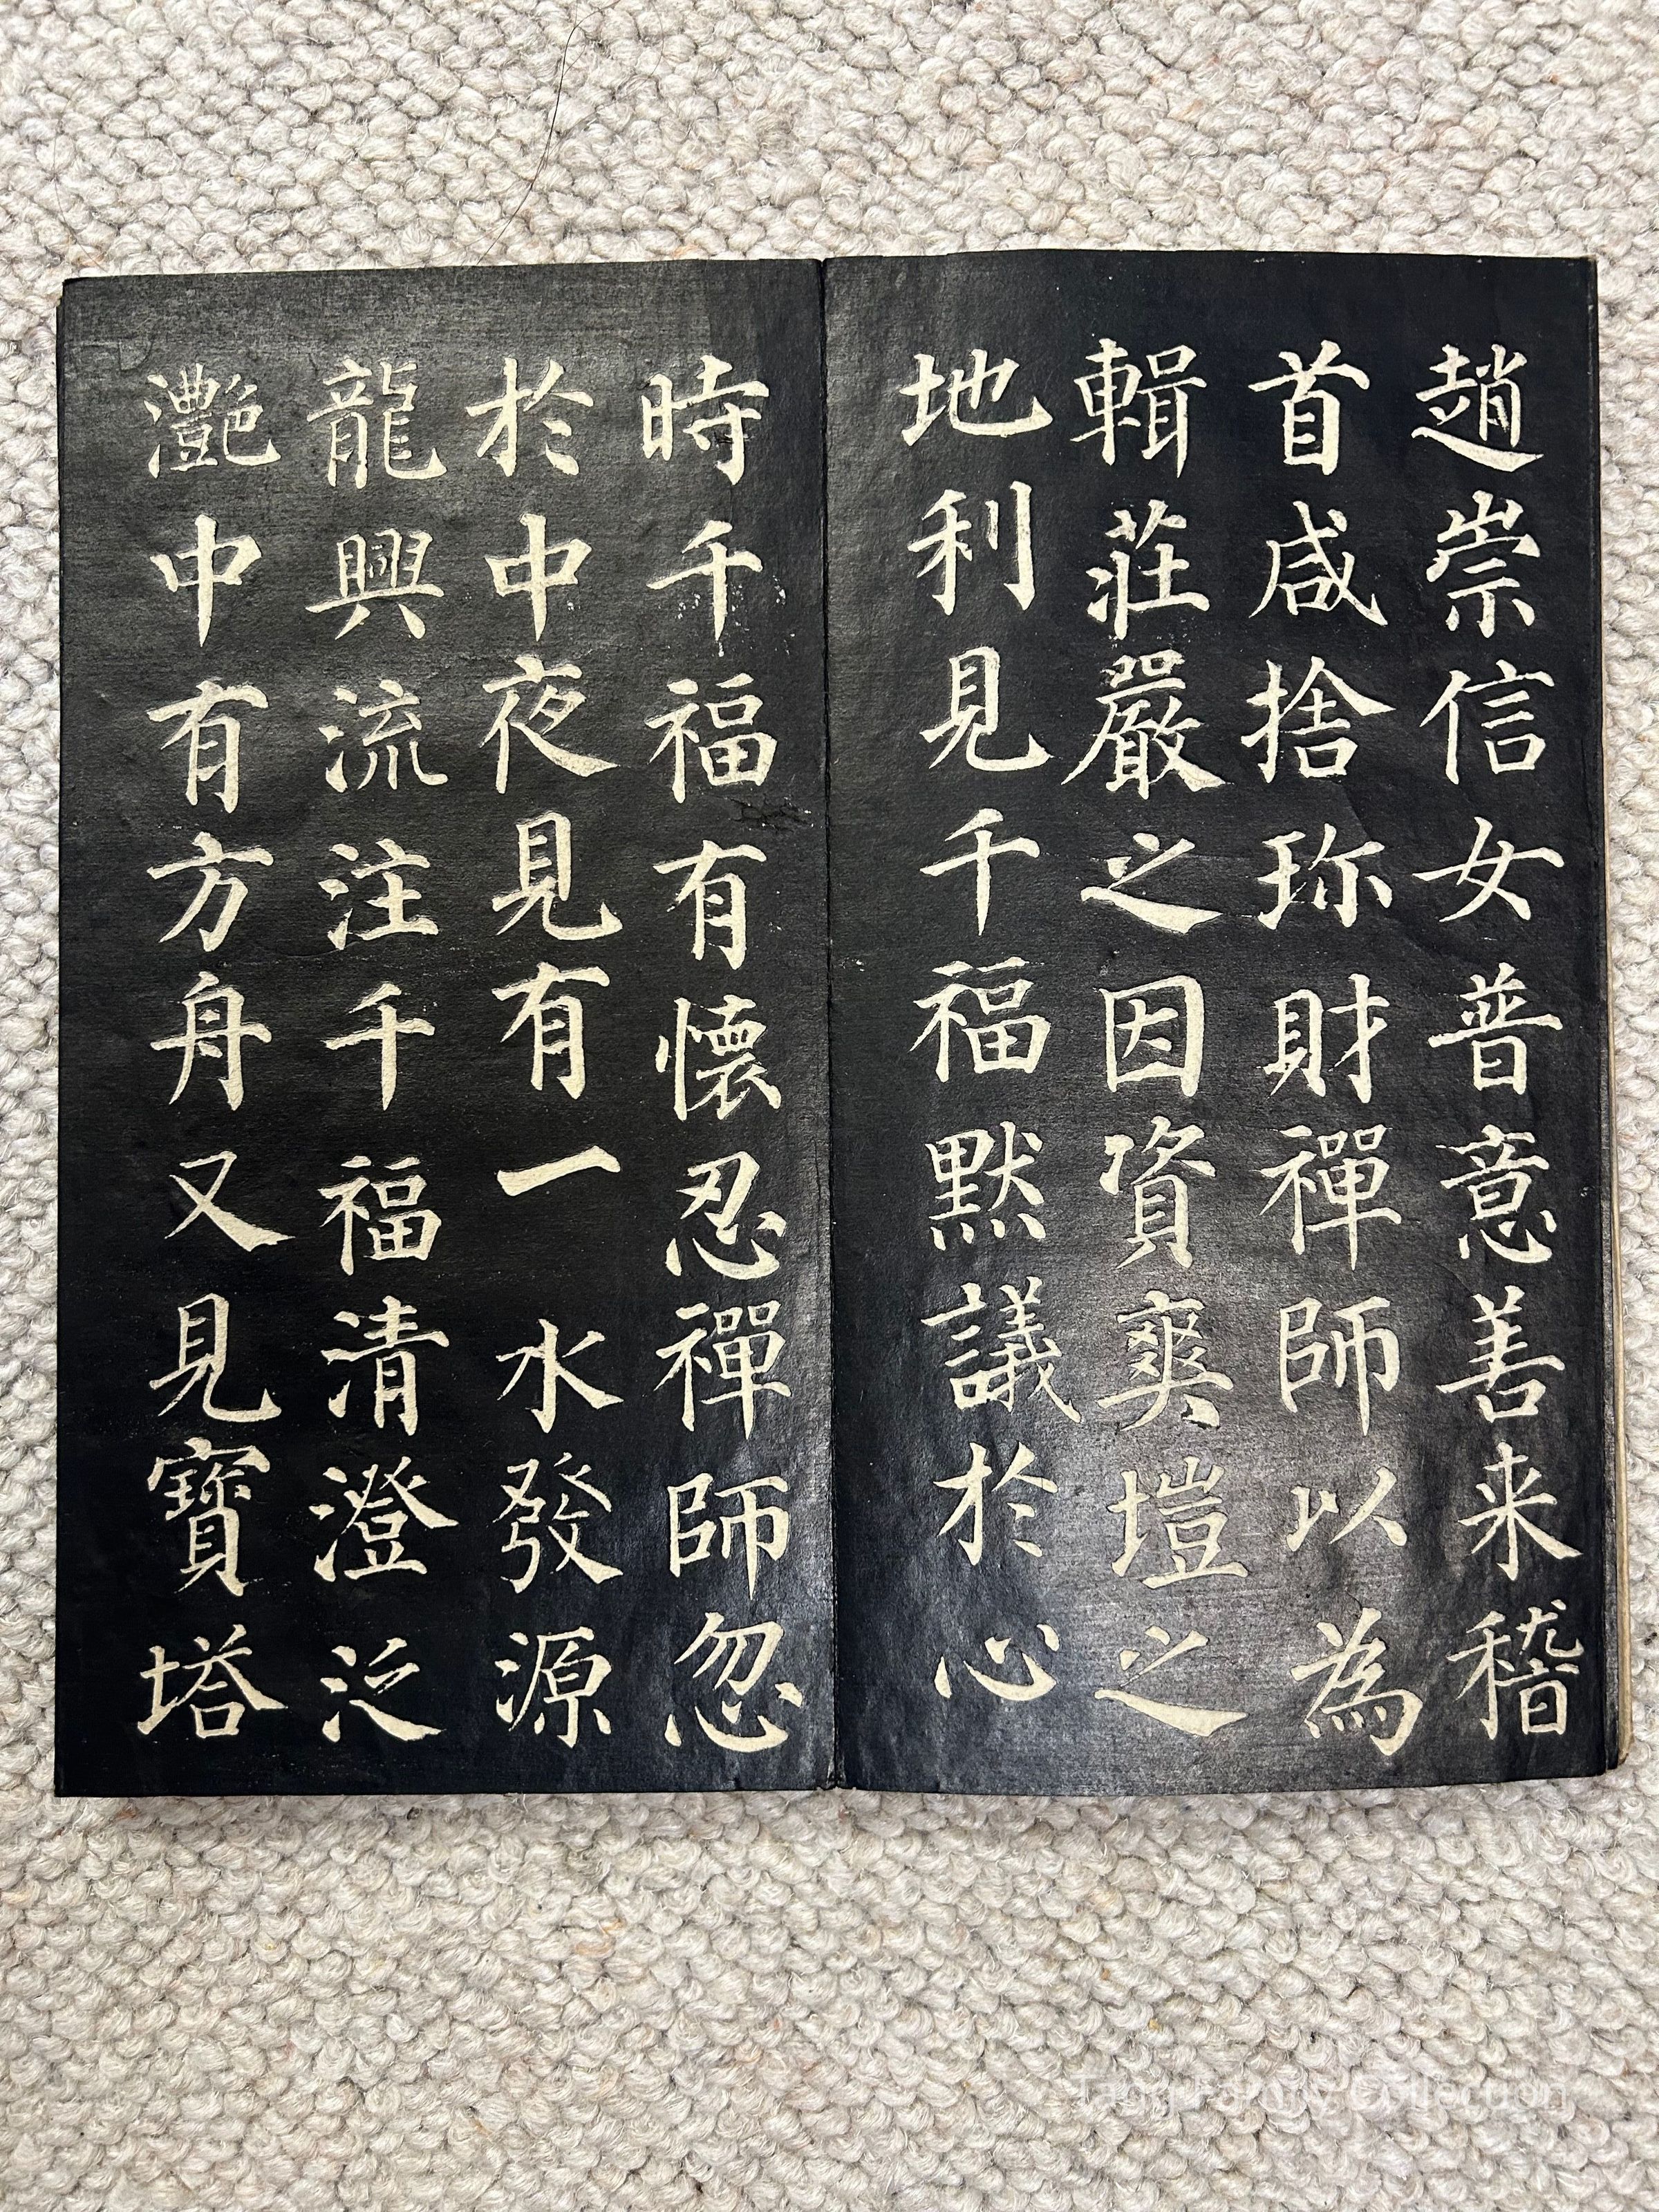 趙崇信女普意善来稽
首咸捨珎財禪師以為
輯莊嚴之因資爽塏之
地利見千福默議於心
時千福有懷忍禪師忽
於中夜見有一水發源
龍興流注千福清澄泛
灔中有方舟又見寶塔
Collection